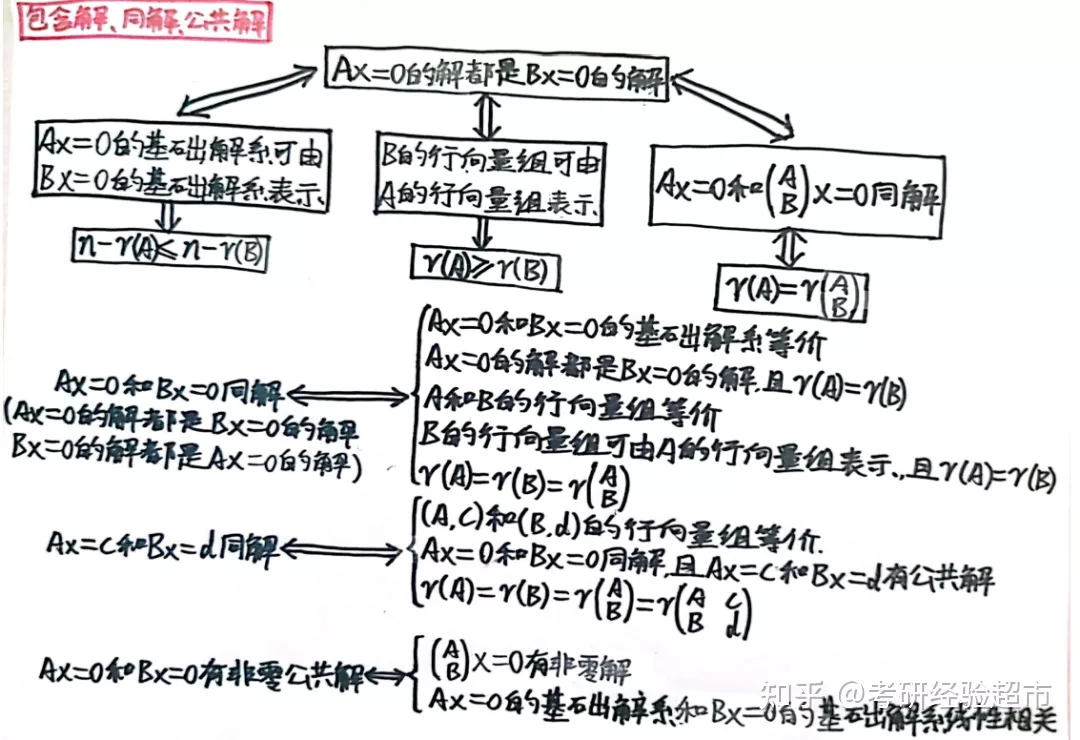 包含解、同解、公共解
Ax=0的解都是Bx=0的解
Ax=0的基础解系可由
Bx=0的基础解系表示
n-r(A)≤n-r(B)
B的行向量组可由
A的行向量组表示
r(A)≥r(B)
Ax=0和(A B)x=0同解
r(A)=r(A B)
Ax=0和Bx=0同解
(Ax=0的解都是Bx=0的解
Bx=0的解都是Ax=0的解)
Ax=0和Bx=0的基础解系等价
Ax=0的解都是Bx=0的解,且r(A)=r(B)
A和B的行向量组等价
B的行向量组可由A的行向量组表示,且r(A)=r(B)
r(A)=r(B)=r(A B)
Ax=c和Bx=d同解
(A,c)和(B,d)的行向量组等价.
Ax=0和Bx=0同解,且Ax=c和Bx=d有公共解
r(A)=r(B)=r(A B)=r(A c B d)
Ax=0和Bx=0有非零公共解
(A B)x=0有非零解
Ax=0的基础解系和Bx=0的基础解系线性相关
知乎 @考研经验超市